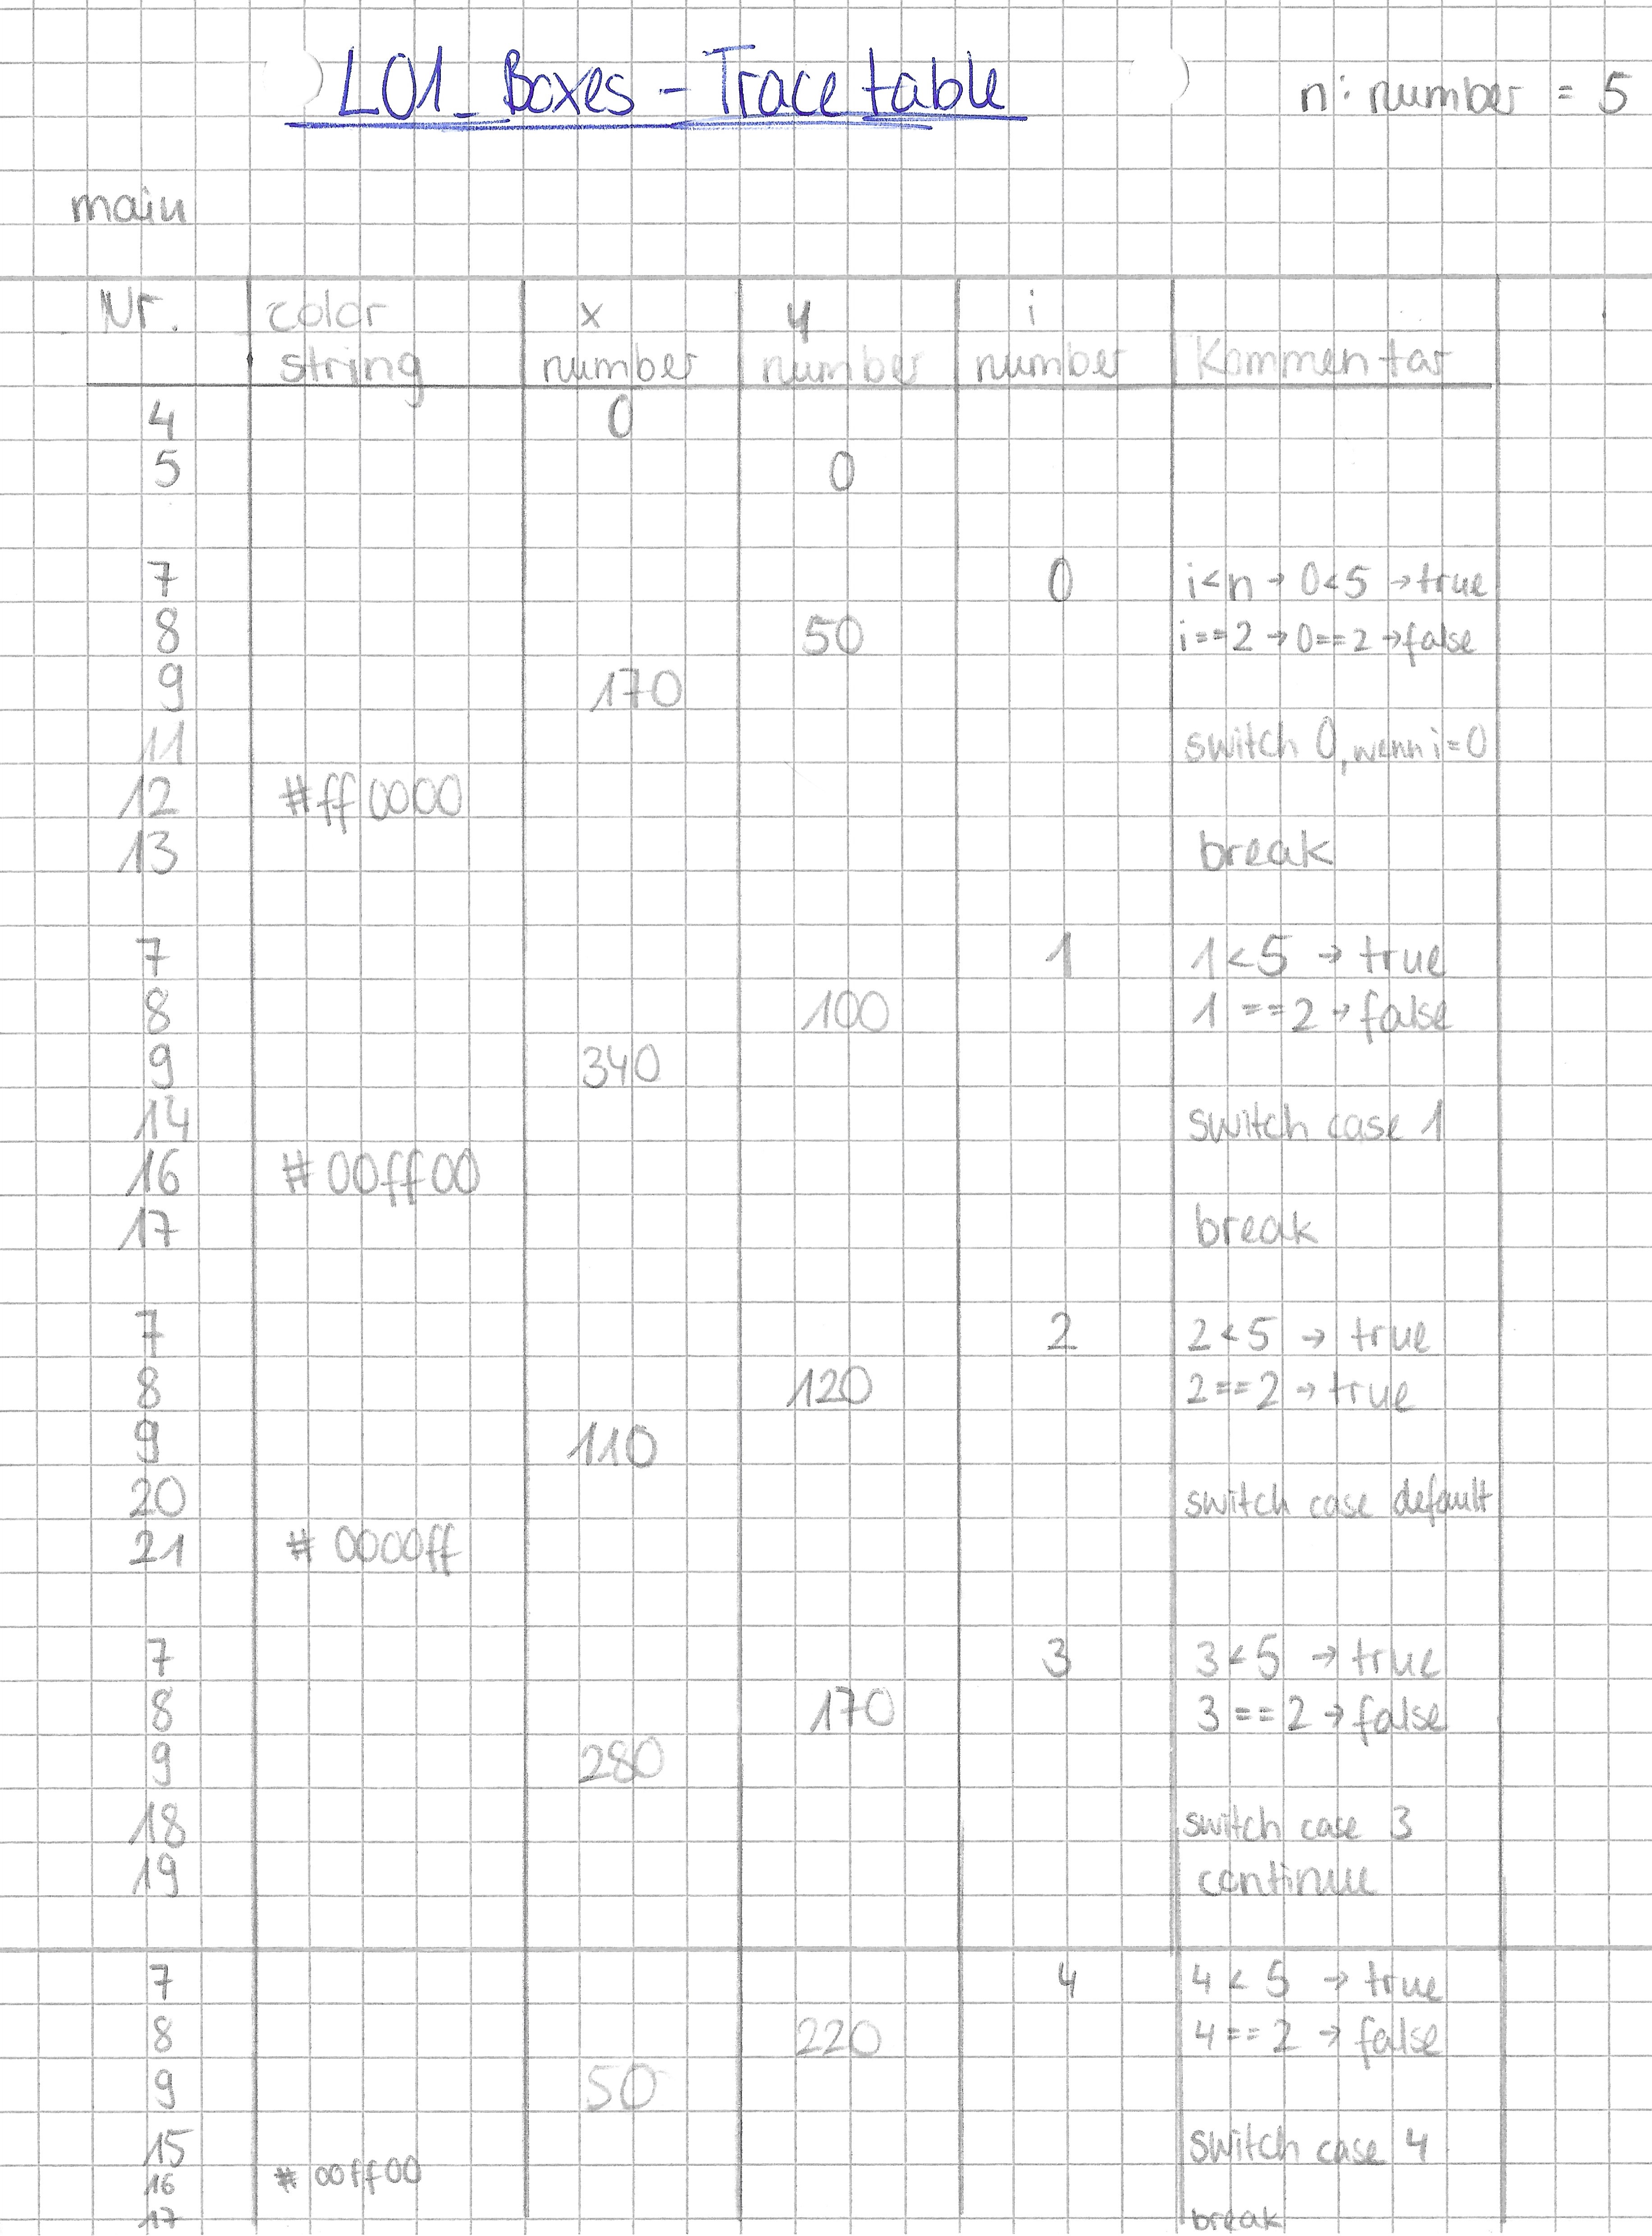 L01_Boxes - Trace table
n: number = 5
main
Nr. color x y i
string number number number Kommentar
4 0
5 0
7 0 i<n → 0<5 → true
8 50 i==2 → 0==2 → false
9 170
11 switch 0, wenn i=0
12 #ff0000
13 break
7 1 1<5 → true
8 100 1==2 → false
9 340
14 switch case 1
16 #00ff00
17 break
7 2 2<5 → true
8 120 2==2 → true
9 110
20 switch case default
21 #0000ff
7 3 3<5 → true
8 170 3==2 → false
9 280
18 switch case 3
19 continue
7 4 4<5 → true
8 220 4==2 → false
9 50
15 switch case 4
16 #00ff00
17 break